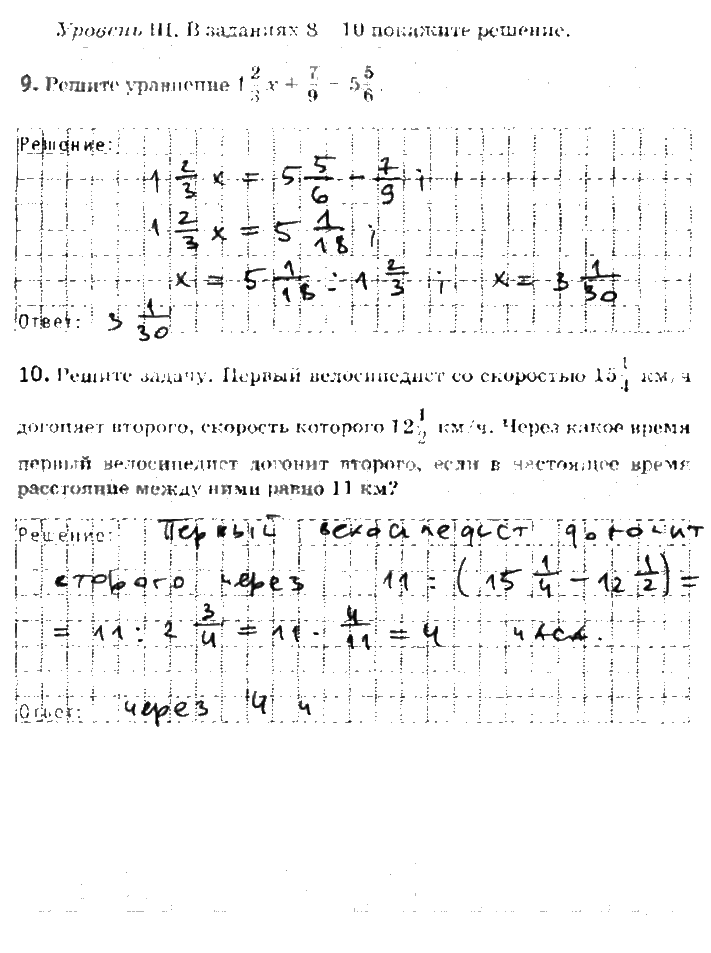 Уровень III. В заданиях 8 – 10 покажите решение.
9. Решите уравнение 1 2/3 x + 7/9 = 5 5/6.
Решение:
1 2/3 x = 5 5/6 − 7/9 ;
1 2/3 x = 5 1/18 ;
x = 5 1/18 : 1 2/3 ; x = 3 1/30
Ответ: 3 1/30
10. Решите задачу. Первый велосипедист со скоростью 15 1/4 км/ч
догоняет второго, скорость которого 12 1/2 км/ч. Через какое время
первый велосипедист догонит второго, если в настоящее время
расстояние между ними равно 11 км?
Решение: Первый велосипедист догонит
второго через 11 : ( 15 1/4 − 12 1/2 ) =
= 11 : 2 3/4 = 11 · 4/11 = 4 часа.
Ответ: через 4 ч